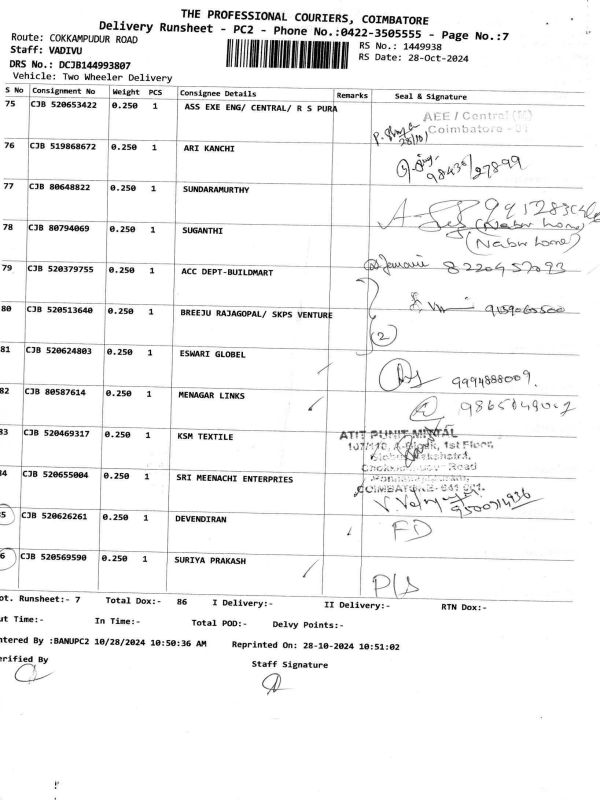 THE PROFESSIONAL COURIERS, COIMBATORE
Delivery Runsheet - PC2 - Phone No.:0422-3505555 - Page No.:7
Route: COKKAMPUDUR ROAD
RS No.: 1449938
Staff: VADIVU
RS Date: 28-Oct-2024
DRS No.: DCJB144993807
Vehicle: Two Wheeler Delivery
S No Consignment No Weight PCS Consignee Details Remarks Seal & Signature
75 CJB 520653422 0.250 1 ASS EXE ENG/ CENTRAL/ R S PURA
AEE / Central (M)
Coimbatore - 01
28/10/
76 CJB 519868672 0.250 1 ARI KANCHI
98436/27899
77 CJB 80648822 0.250 1 SUNDARAMURTHY
78 CJB 80794069 0.250 1 SUGANTHI
79 CJB 520379755 0.250 1 ACC DEPT-BUILDMART
8220457093
80 CJB 520513640 0.250 1 BREEJU RAJAGOPAL/ SKPS VENTURE
9159065500
2
81 CJB 520624803 0.250 1 ESWARI GLOBEL
9994888009.
82 CJB 80587614 0.250 1 MENAGAR LINKS
83 CJB 520469317 0.250 1 KSM TEXTILE
ATIT PUNIT MITTAL
1st Floor,
Road
COIMBATORE-641 001.
84 CJB 520655004 0.250 1 SRI MEENACHI ENTERPRIES
9500714936
85 CJB 520626261 0.250 1 DEVENDIRAN
FD
86 CJB 520569590 0.250 1 SURIYA PRAKASH
P/S
ot. Runsheet:- 7 Total Dox:- 86 I Delivery:- II Delivery:- RTN Dox:-
ut Time:- In Time:- Total POD:- Delvy Points:-
ntered By :BANUPC2 10/28/2024 10:50:36 AM Reprinted On: 28-10-2024 10:51:02
erified By
Staff Signature